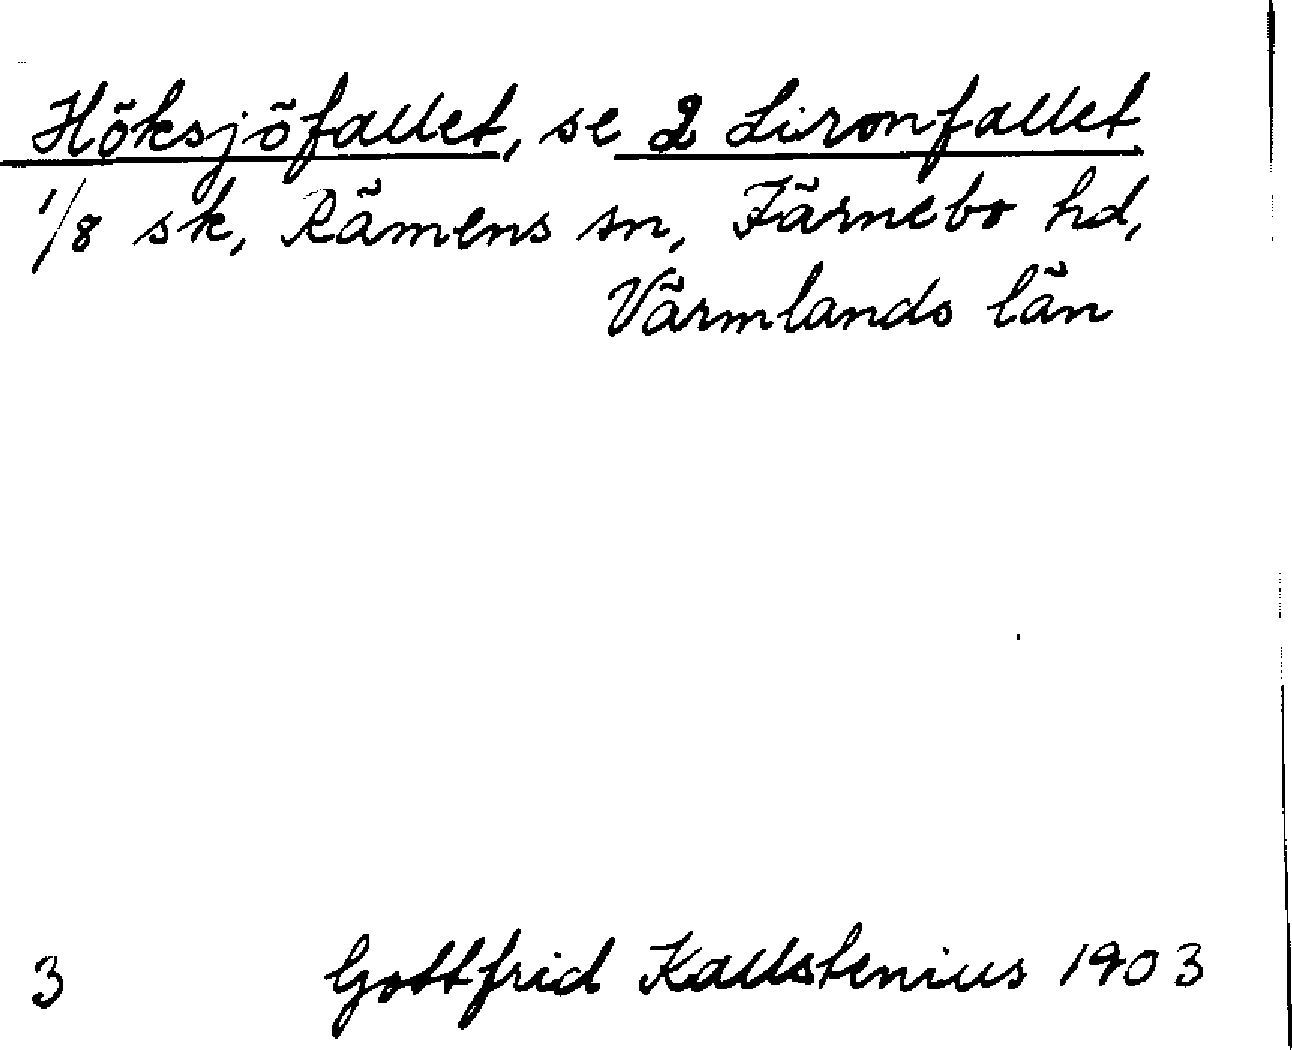 Höksjöfallet, se 2 Lironfallet
1/8 sk, Rämens sn, Färnebo hd,
Värmlands län
3 Gottfrid Kallstenius 1903